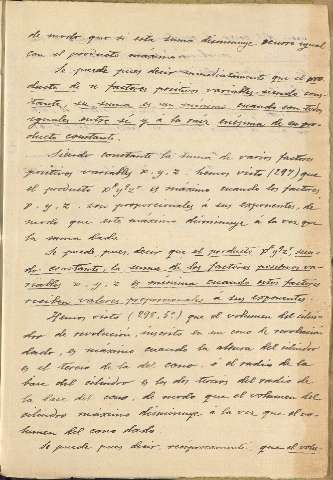 de modo que si esta suma disminuye, ocurre igual
con el producto máximo.
Se puede pues decir inmediatamente que el pro-
ducto de n factores positivos variables siendo cons-
tante, su suma es un mínimo cuando son todos
iguales entre sí y á la raiz enésima de su pro-
ducto constante.
Siendo constante la suma de varios factores
positivos variables x, y, z, hemos visto (297) que
el producto es máximo cuando los factores
x, y, z, son proporcionales á sus exponentes, de
modo que este máximo disminuye á la vez que
la suma dada.
Se puede pues, decir que el producto sien-
do constante, la suma de los factores positivos va-
riables x, y, z es mínima cuando estos factores
reciben valores proporcionales á sus exponentes.
Hemos visto (298, 5º) que el volumen del cilin-
dro de revolución, inscrito en un cono de revolución
dado, es máximo cuando la altura del cilindro
es el tercio de la del cono, ó el radio de la
base del cilindro es los dos tercios del radio de
la base del cono, de modo que el volumen del
cilindro máximo disminuye á la vez que el vo-
lumen del cono dado.
Se puede pues decir, recíprocamente, que el volu-